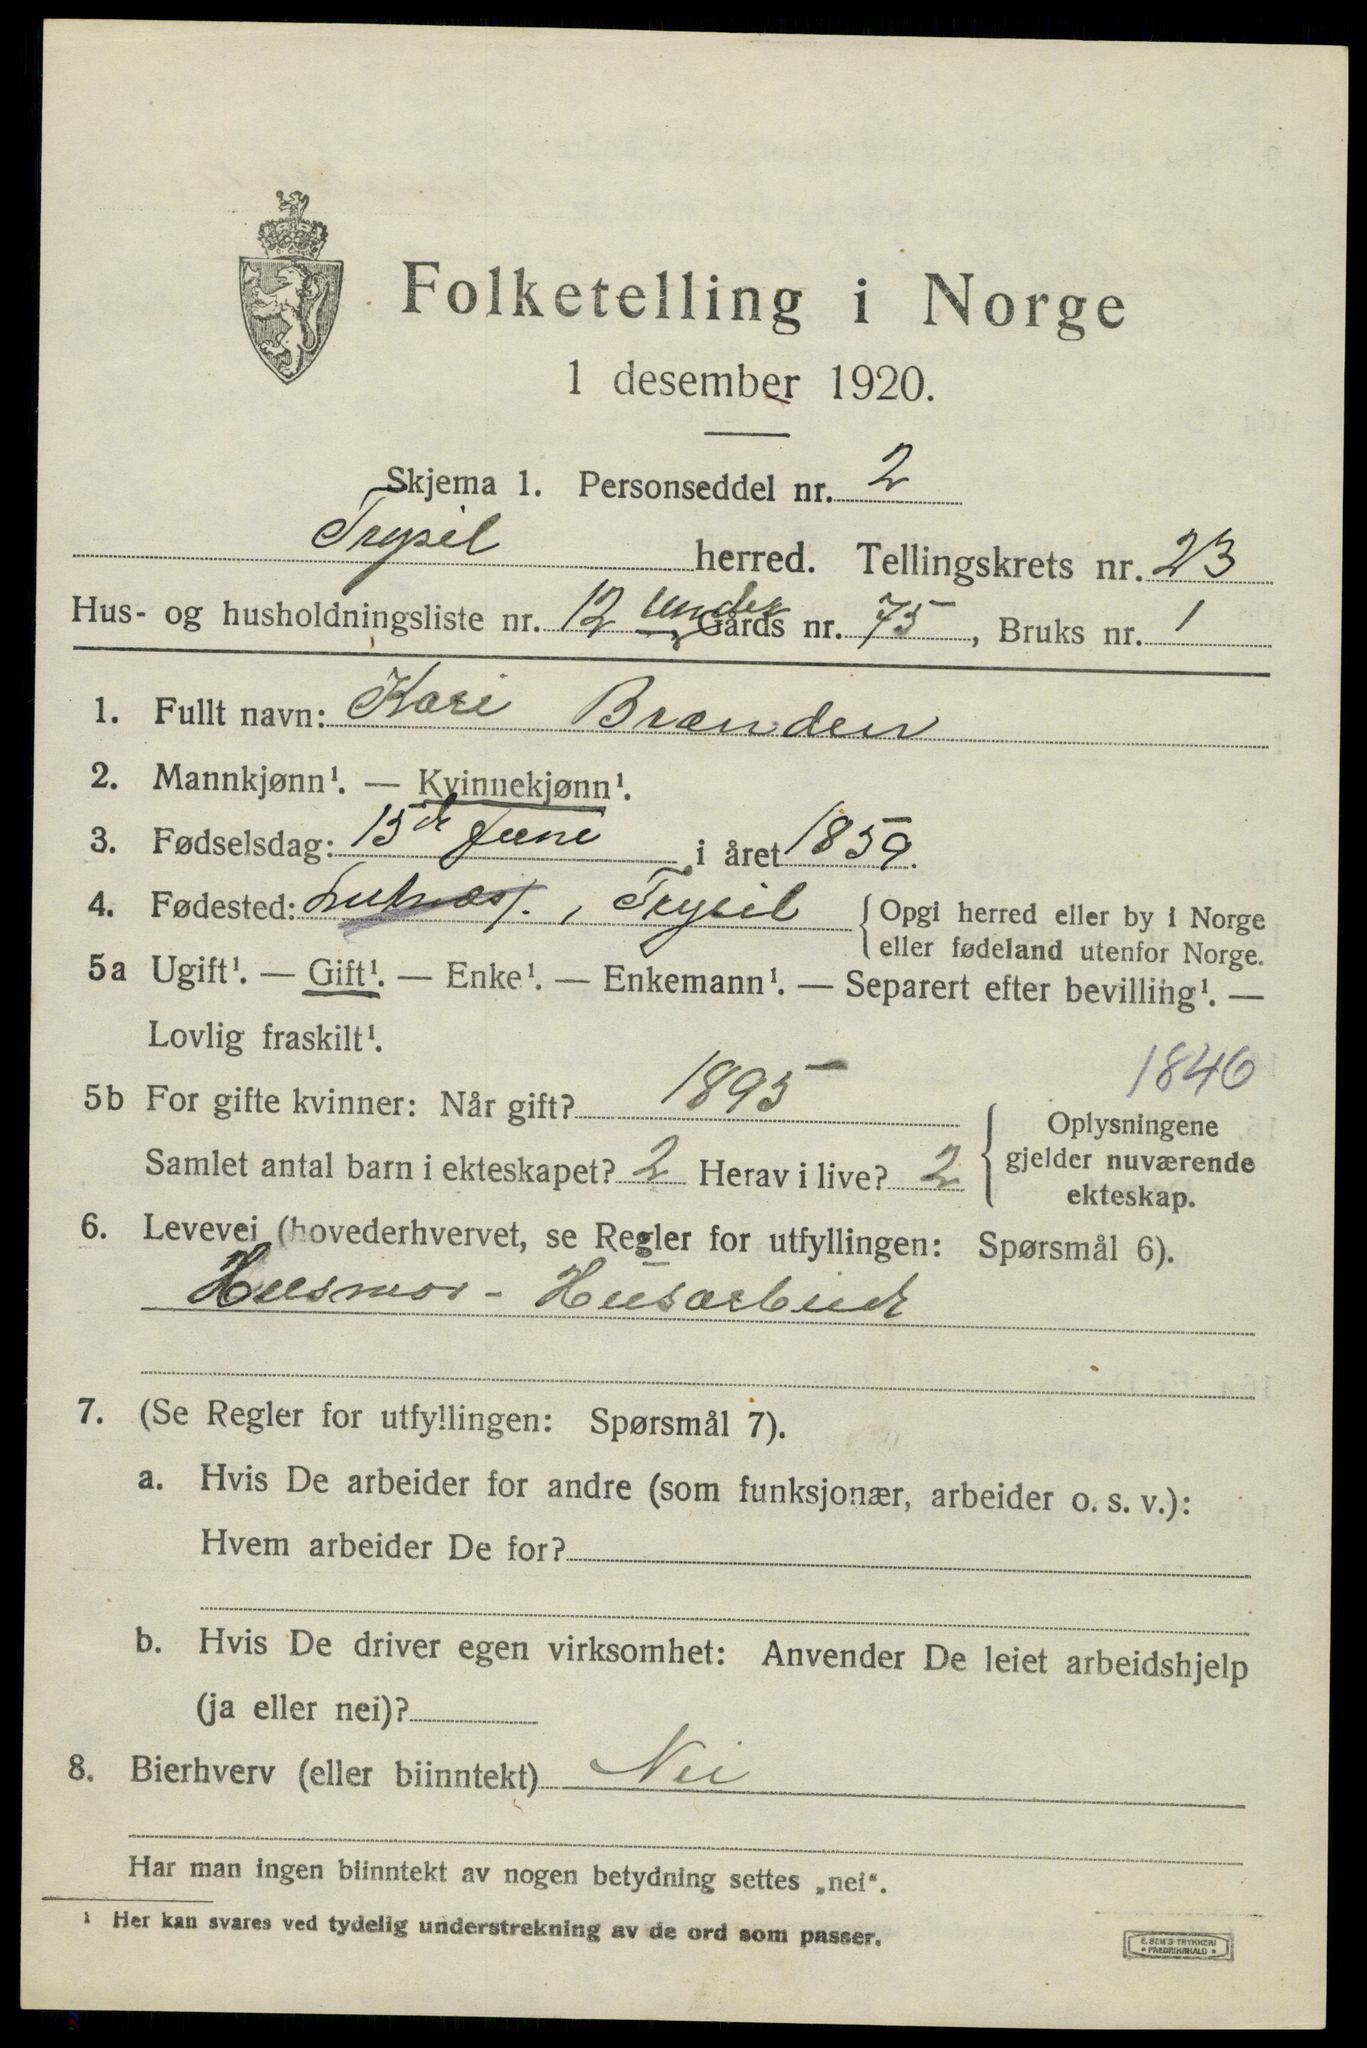 Folketelling i Norge
1 desember 1920.
Skjema 1. Personseddel nr. 2
Trysil herred. Tellingskrets nr. 23
Hus- og husholdningsliste nr. 12 under Gårds nr. 75, Bruks nr. 1
1. Fullt navn: Kari Brænden
2. Mannkjønn¹. — Kvinnekjønn¹.
3. Fødselsdag: 15de Juni i året 1859.
4. Fødested: , Trysil { Opgi herred eller by i Norge
eller fødeland utenfor Norge.
5a Ugift¹. — Gift¹. — Enke¹. — Enkemann¹. — Separert efter bevilling¹. —
Lovlig fraskilt¹.
1846
5b For gifte kvinner: Når gift? 1895
Samlet antal barn i ekteskapet? 2 Herav i live? 2
Oplysningene
gjelder nuværende
ekteskap.
6. Levevei (hovederhvervet, se Regler for utfyllingen: Spørsmål 6).
Husmor - Husarbeid
7. (Se Regler for utfyllingen: Spørsmål 7).
a. Hvis De arbeider for andre (som funksjonær, arbeider o. s. v.):
Hvem arbeider De for?
b. Hvis De driver egen virksomhet: Anvender De leiet arbeidshjelp
(ja eller nei)?
8. Bierhverv (eller biinntekt) Nei
Har man ingen biinntekt av nogen betydning settes „nei“.
¹ Her kan svares ved tydelig understrekning av de ord som passer.
E. SEM'S TRYKKERI
• FREDRIKSHALD •